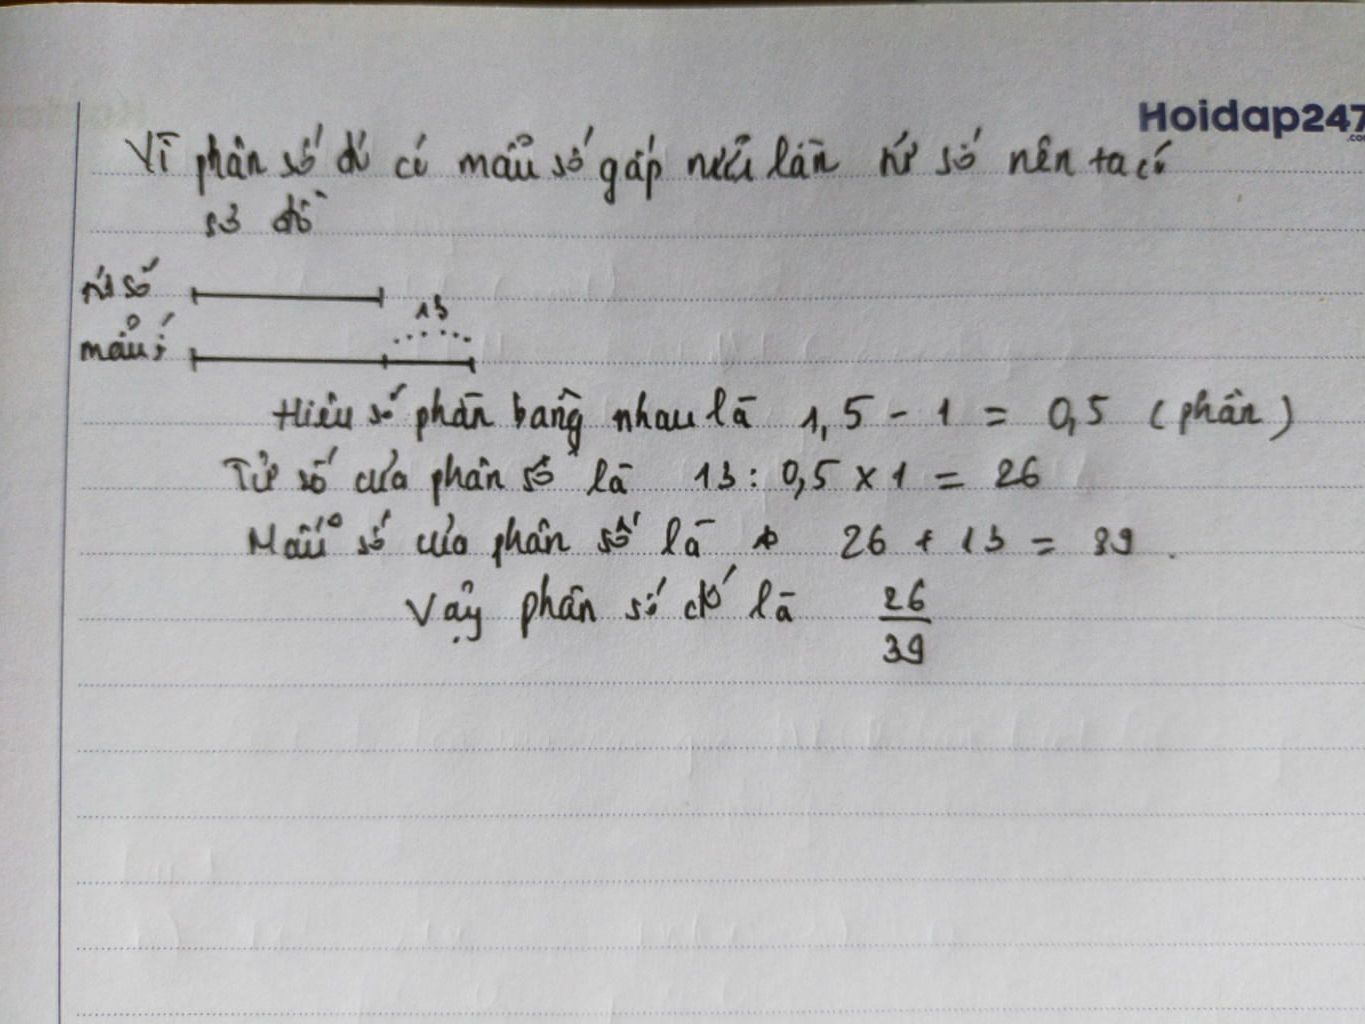 Hoidap247
.com
Vì phân số đó có mẫu số gấp rưỡi lần tử số nên ta có
sơ đồ
tử số
13
mẫu số
Hiệu số phần bằng nhau là 1,5 - 1 = 0,5 (phần)
Tử số của phân số là 13 : 0,5 x 1 = 26
Mẫu số của phân số là 26 + 13 = 39.
Vậy phân số đó là 26
39